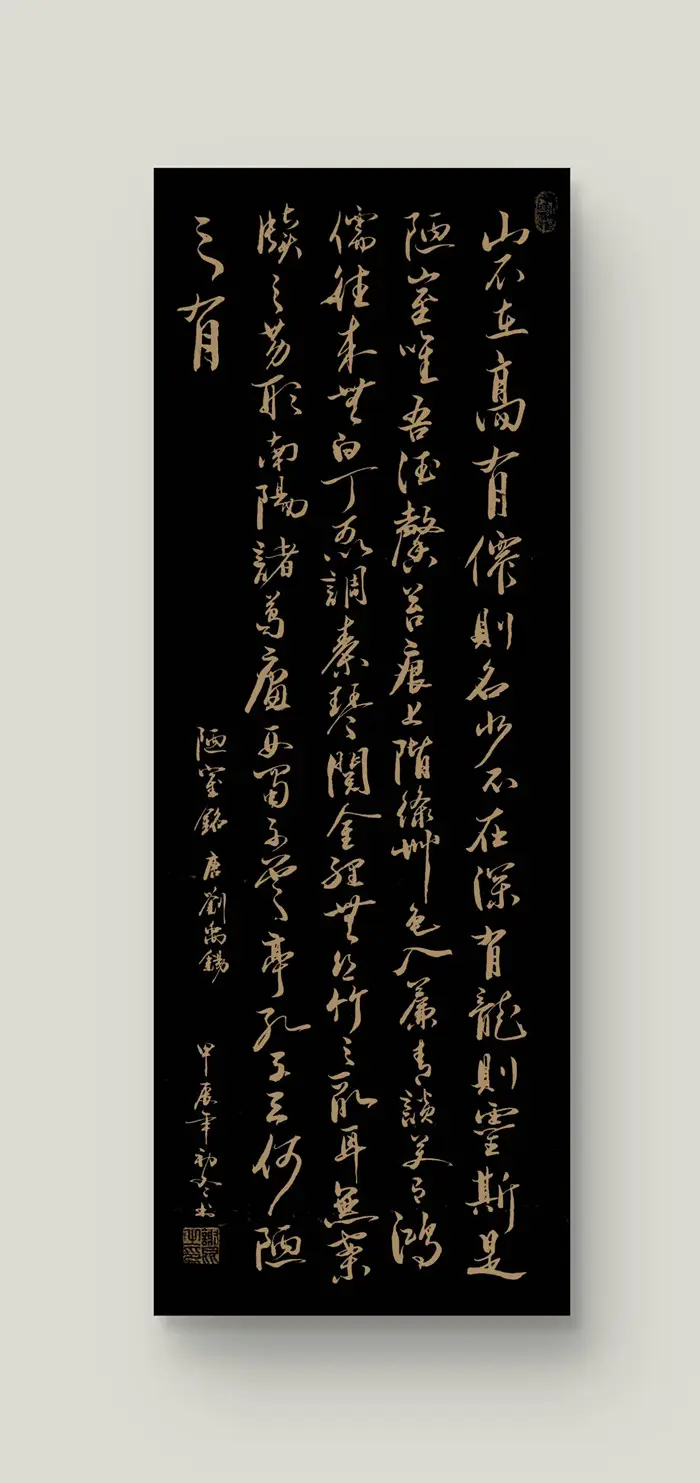 山不在高有僊則名水不在深有龍則靈斯是
陋室唯吾德馨苔痕上階綠艸色入簾青談笑有鴻
儒往来無白丁可以調素琴閱金經無絲竹之亂耳無案
牘之勞形南陽諸葛廬西蜀子雲亭孔子云何陋
之有
陋室銘 唐劉禹錫 甲辰年初冬